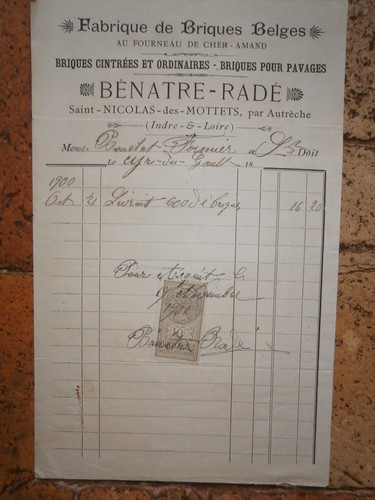 Fabrique de Briques Belges
AU FOURNEAU DE CHER-AMAND
BRIQUES CINTRÉES ET ORDINAIRES - BRIQUES POUR PAVAGES
BÉNATRE-RADÉ
Saint-NICOLAS-des-MOTTETS, par Autrèche
(Indre-&-Loire)
Mons à St Doit
le Cyr-du-Gault 18
1900
Oct 21 Livrait 600 de briques 16 20
Pour acquit le
Novembre
Bénatre Radé